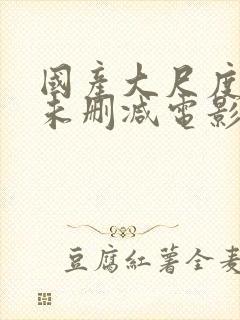 國產大尺度
未刪减電影
豆腐紅薯全麦